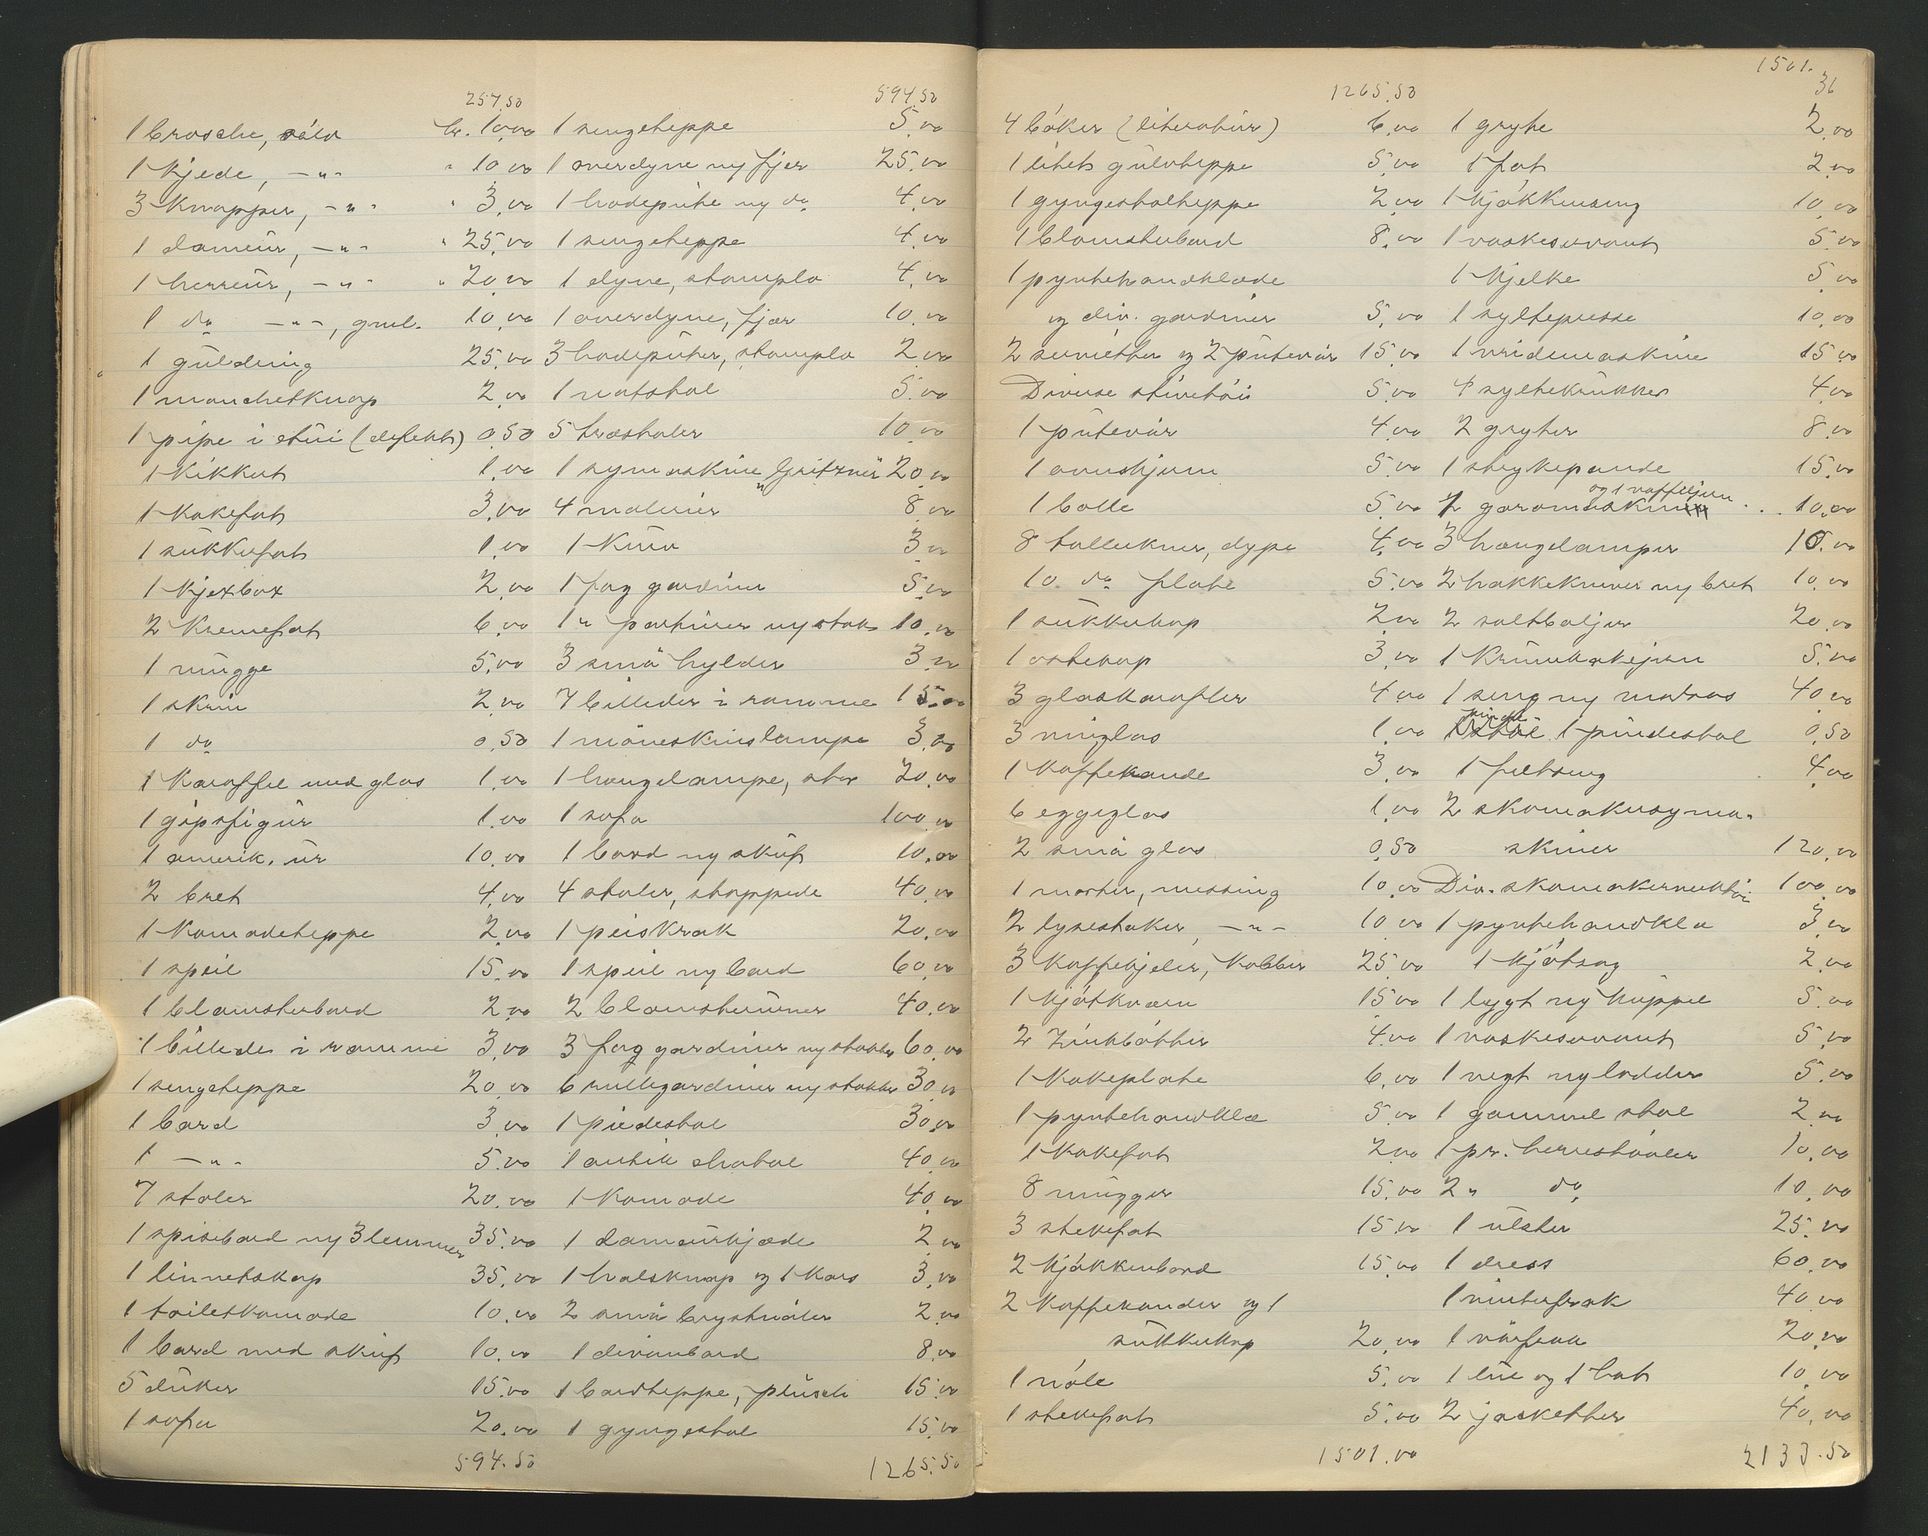 257.50
1 brosche, sölv kr. 10.00
1 kjede, -"- " 10.00
3 knapper, -"- " 3.00
1 dameur, -"- " 25.00
1 herreur, -"- " 20.00
1 do -"-, gml. 10.00
1 guldring 25.00
1 manchetknap 2.00
1 pipe i etui (defekt) 0.50
1 kikkert 1.00
1 kakefat 3.00
1 sukkerfat 1.00
1 kjexbox 2.00
2 kremefat 6.00
1 mugge 5.00
1 skrin 2.00
1 do 0.50
1 karaffel med glas 1.00
1 gipsfigur 1.00
1 amerik. ur 10.00
2 bret 4.00
1 komodeteppe 2.00
1 speil 15.00
1 blomsterbord 2.00
1 billede i ramme 3.00
1 sengeteppe 20.00
1 bord 3.00
1 -"- 5.00
7 stoler 20.00
1 spisebord m/ 3 lemmer 35.00
1 linnetskap 35.00
1 toiletkomode 10.00
1 bord med skuf 10.00
5 duker 15.00
1 sofa 20.00
594.50
594.50
1 sengeteppe 5.00
1 overdyne m/ fjer 25.00
1 hodepute m/ do 4.00
1 sengeteppe 4.00
1 dyne, stamplo 4.00
1 overdyne, fjær 10.00
3 hodeputer, stamplo 2.00
1 natstol 5.00
5 træstoler 10.00
1 symaskine "Gritzner" 20.00
4 malerier 8.00
1 kurv 3.00
1 fag gardiner 5.00
1 " portierer m/ stok 10.00
3 små hylder 3.00
7 billeder i ramme 15.00
1 måneskinslampe 3.00
1 hængelampe, stor 20.00
1 sofa 100.00
1 bord m/ skuf 10.00
4 stoler, stoppede 40.00
1 peiskrak 20.00
1 speil m/ bord 60.00
2 blomsterurner 40.00
3 fag gardiner m/ stokker 60.00
6 rullegardiner m/ stokker 30.00
1 piedestal 30.00
1 antik chatol 40.00
1 komode 40.00
1 dameurkjæde 2.00
1 halsknap og 1 kors 3.00
2 små brystnåler 2.00
1 divanbord 8.00
1 bordteppe, plusch 15.00
1 gyngestol 15.00
1265.50
1265.50
4 böker (literatur) 6.00
1 litet gulvteppe 5.00
1 gyngestolteppe 2.00
1 blomsterbord 8.00
1 pyntehandklæde
og div. gardiner 5.00
2 servietter og 2 putevår 15.00
Diverse stivetöi 5.00
1 putevår 4.00
1 ovnskjerm 5.00
1 bolle 5.00
8 tallerkner, dype 4.00
10 do flate 5.00
1 sukkerkop 2.00
1 ostekop 3.00
3 glaskarafler 4.00
3 vinglas 1.00
1 kaffekande 3.00
6 eggeglas 1.00
2 små glas 0.50
1 morter, messing 10.00
2 lysestaker, -"- 10.00
3 kaffekjeler, kobber 25.00
1 kjötkvern 15.00
2 zinkbötter 4.00
1 kakeplate 6.00
1 pyntehandklæ 5.00
1 kakefat 2.00
8 mugger 15.00
3 stekefat 15.00
2 kjökkenbord 15.00
2 kaffekander og 1
sukkerkop 20.00
1 vôle 5.00
1 stekefat 5.00
1501.00
1501.
36
1 gryte 2.00
1 fat 2.00
1 kjökkenseng 10.00
1 vaskeservant 5.00
1 kjelke 5.00
1 syltepresse 10.00
1 vridemaskine 15.00
4 syltekrukker 4.00
2 gryter 8.00
1 strykepande 15.00
og 1 vaffeljern
2 goromaskiner . . 10.00
3 hængelamper 10.00
2 hakkekniver m/ bret 10.00
2 saltbaljer 20.00
1 krumkakejern 5.00
1 seng m/ matras 40.00
1 pindestol 0.50
1 feltseng 4.00
2 skomakersyma-
skiner 120.00
Div. skomakerverktöi 100.00
1 pyntehandklæ 3.00
1 kjötsag 2.00
1 lygt m/ kuppel 5.00
1 vaskeservant 5.00
1 vegt m/ lodder 5.00
1 gammel stol 2.00
1 pr. herrestövler 10.00
2 " do 10.00
1 ulster 25.00
1 dress 60.00
1 vinterfrak 40.00
1 vårfrak 20.00
1 lue og 1 hat 10.00
2 jaketter 40.00
2133.50